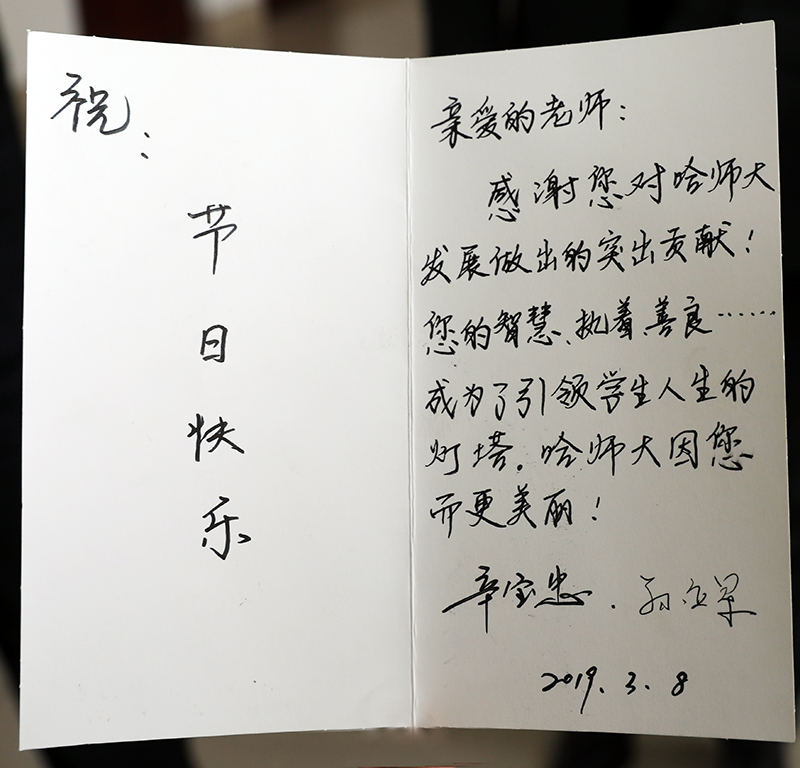 祝：
节
日
快
乐
亲爱的老师：
感谢您对哈师大
发展做出的突出贡献！
您的智慧、执着、善良……
成为了引领学生人生的
灯塔。哈师大因您
而更美丽！
辛宝忠．孙立军
2019.3.8